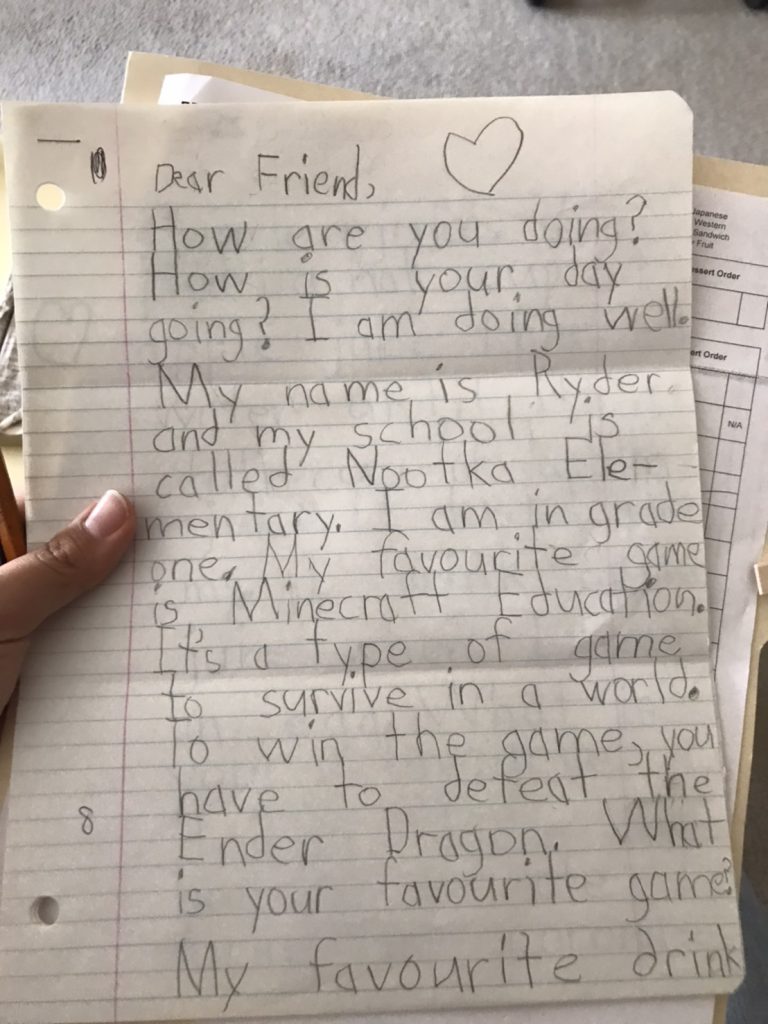 Dear Friend,
How are you doing?
How is your day
going? I am doing well.
My name is Ryder
and my school is
called Nootka Ele-
mentary. I am in grade
one. My favourite game
is Minecraft Education.
It's a type of game
to survive in a world.
To win the game, you
have to defeat the
Ender Dragon. What
is your favourite game?
My favourite drink
8
Japanese
Western
Sandwich
Fruit
Order
Order
N/A